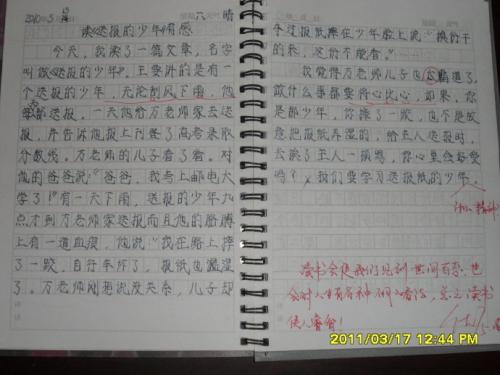 2010.3
六 晴
读《送报的少年》有感
今天,我读了一篇文章,名字
叫做《送报的少年》。主要讲的是有一
个送报的少年,无论刮风下雨,他
都送报,一天他给万老师家去送
报,并告诉他报上刊登了高考录取
分数线。万老师的儿子看了看。对
他的爸爸说:“爸爸,我考上邮电大
学了!”有一天下雨,送报的少年九
点才到万老师家送报而且他的胳膊
上有一道血痕,他说“我在路上摔
了一跤,自行车坏了,报纸也漏湿
了。万老师刚想说没关系,儿子却
夺过报纸摔在少年脸上说“换份干
的来,这份不能看。”
我觉得万老师儿子也太霸道了,
做什么事都要将心比心,如果,你
是那少年,你摔了一跤,也不是故
意把报纸弄湿的,给主人送报时,
去挨了主人一顿骂,你心里会好受
吗?我们要学习送报纸的少年。
什么精神
读书会使我们见到世间百态,也
会对人生有各种
总之读书
使人睿智!
2011/03/17 12:44 PM